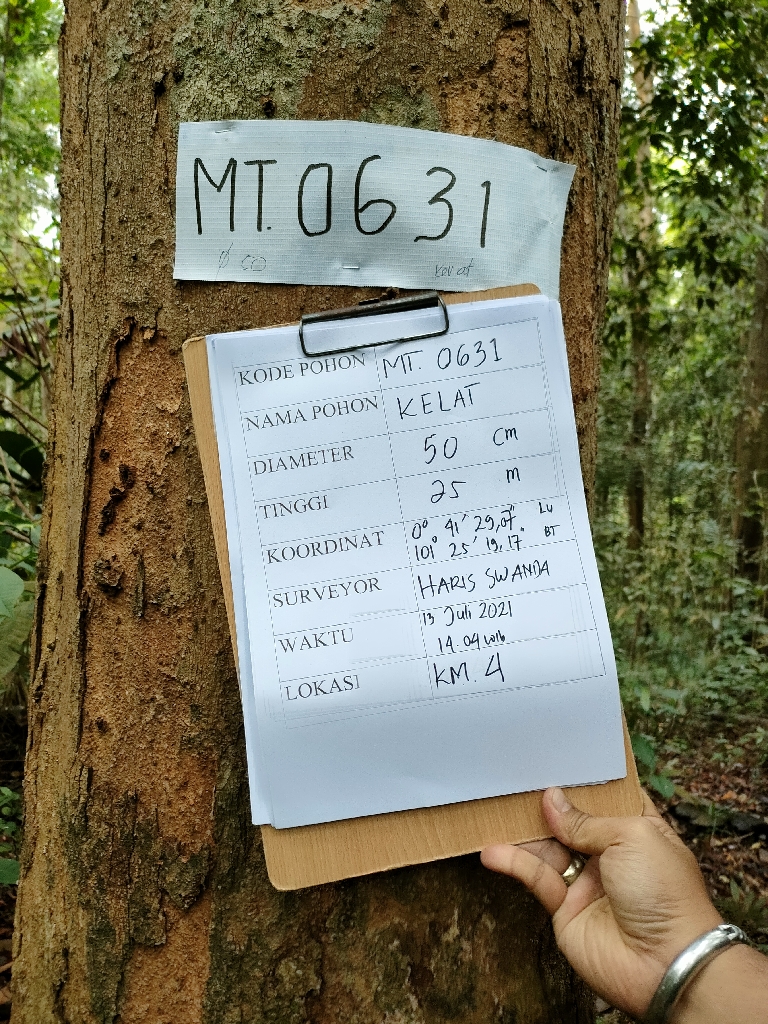 MT. 0631
kelat
KODE POHON MT. 0631
NAMA POHON KELAT
DIAMETER 50 cm
TINGGI 25 m
KOORDINAT 0° 41' 29,07" LU
101° 25' 19,17" BT
SURVEYOR HARIS SWANDA
WAKTU 13 Juli 2021
14.04 WIB
LOKASI KM. 4